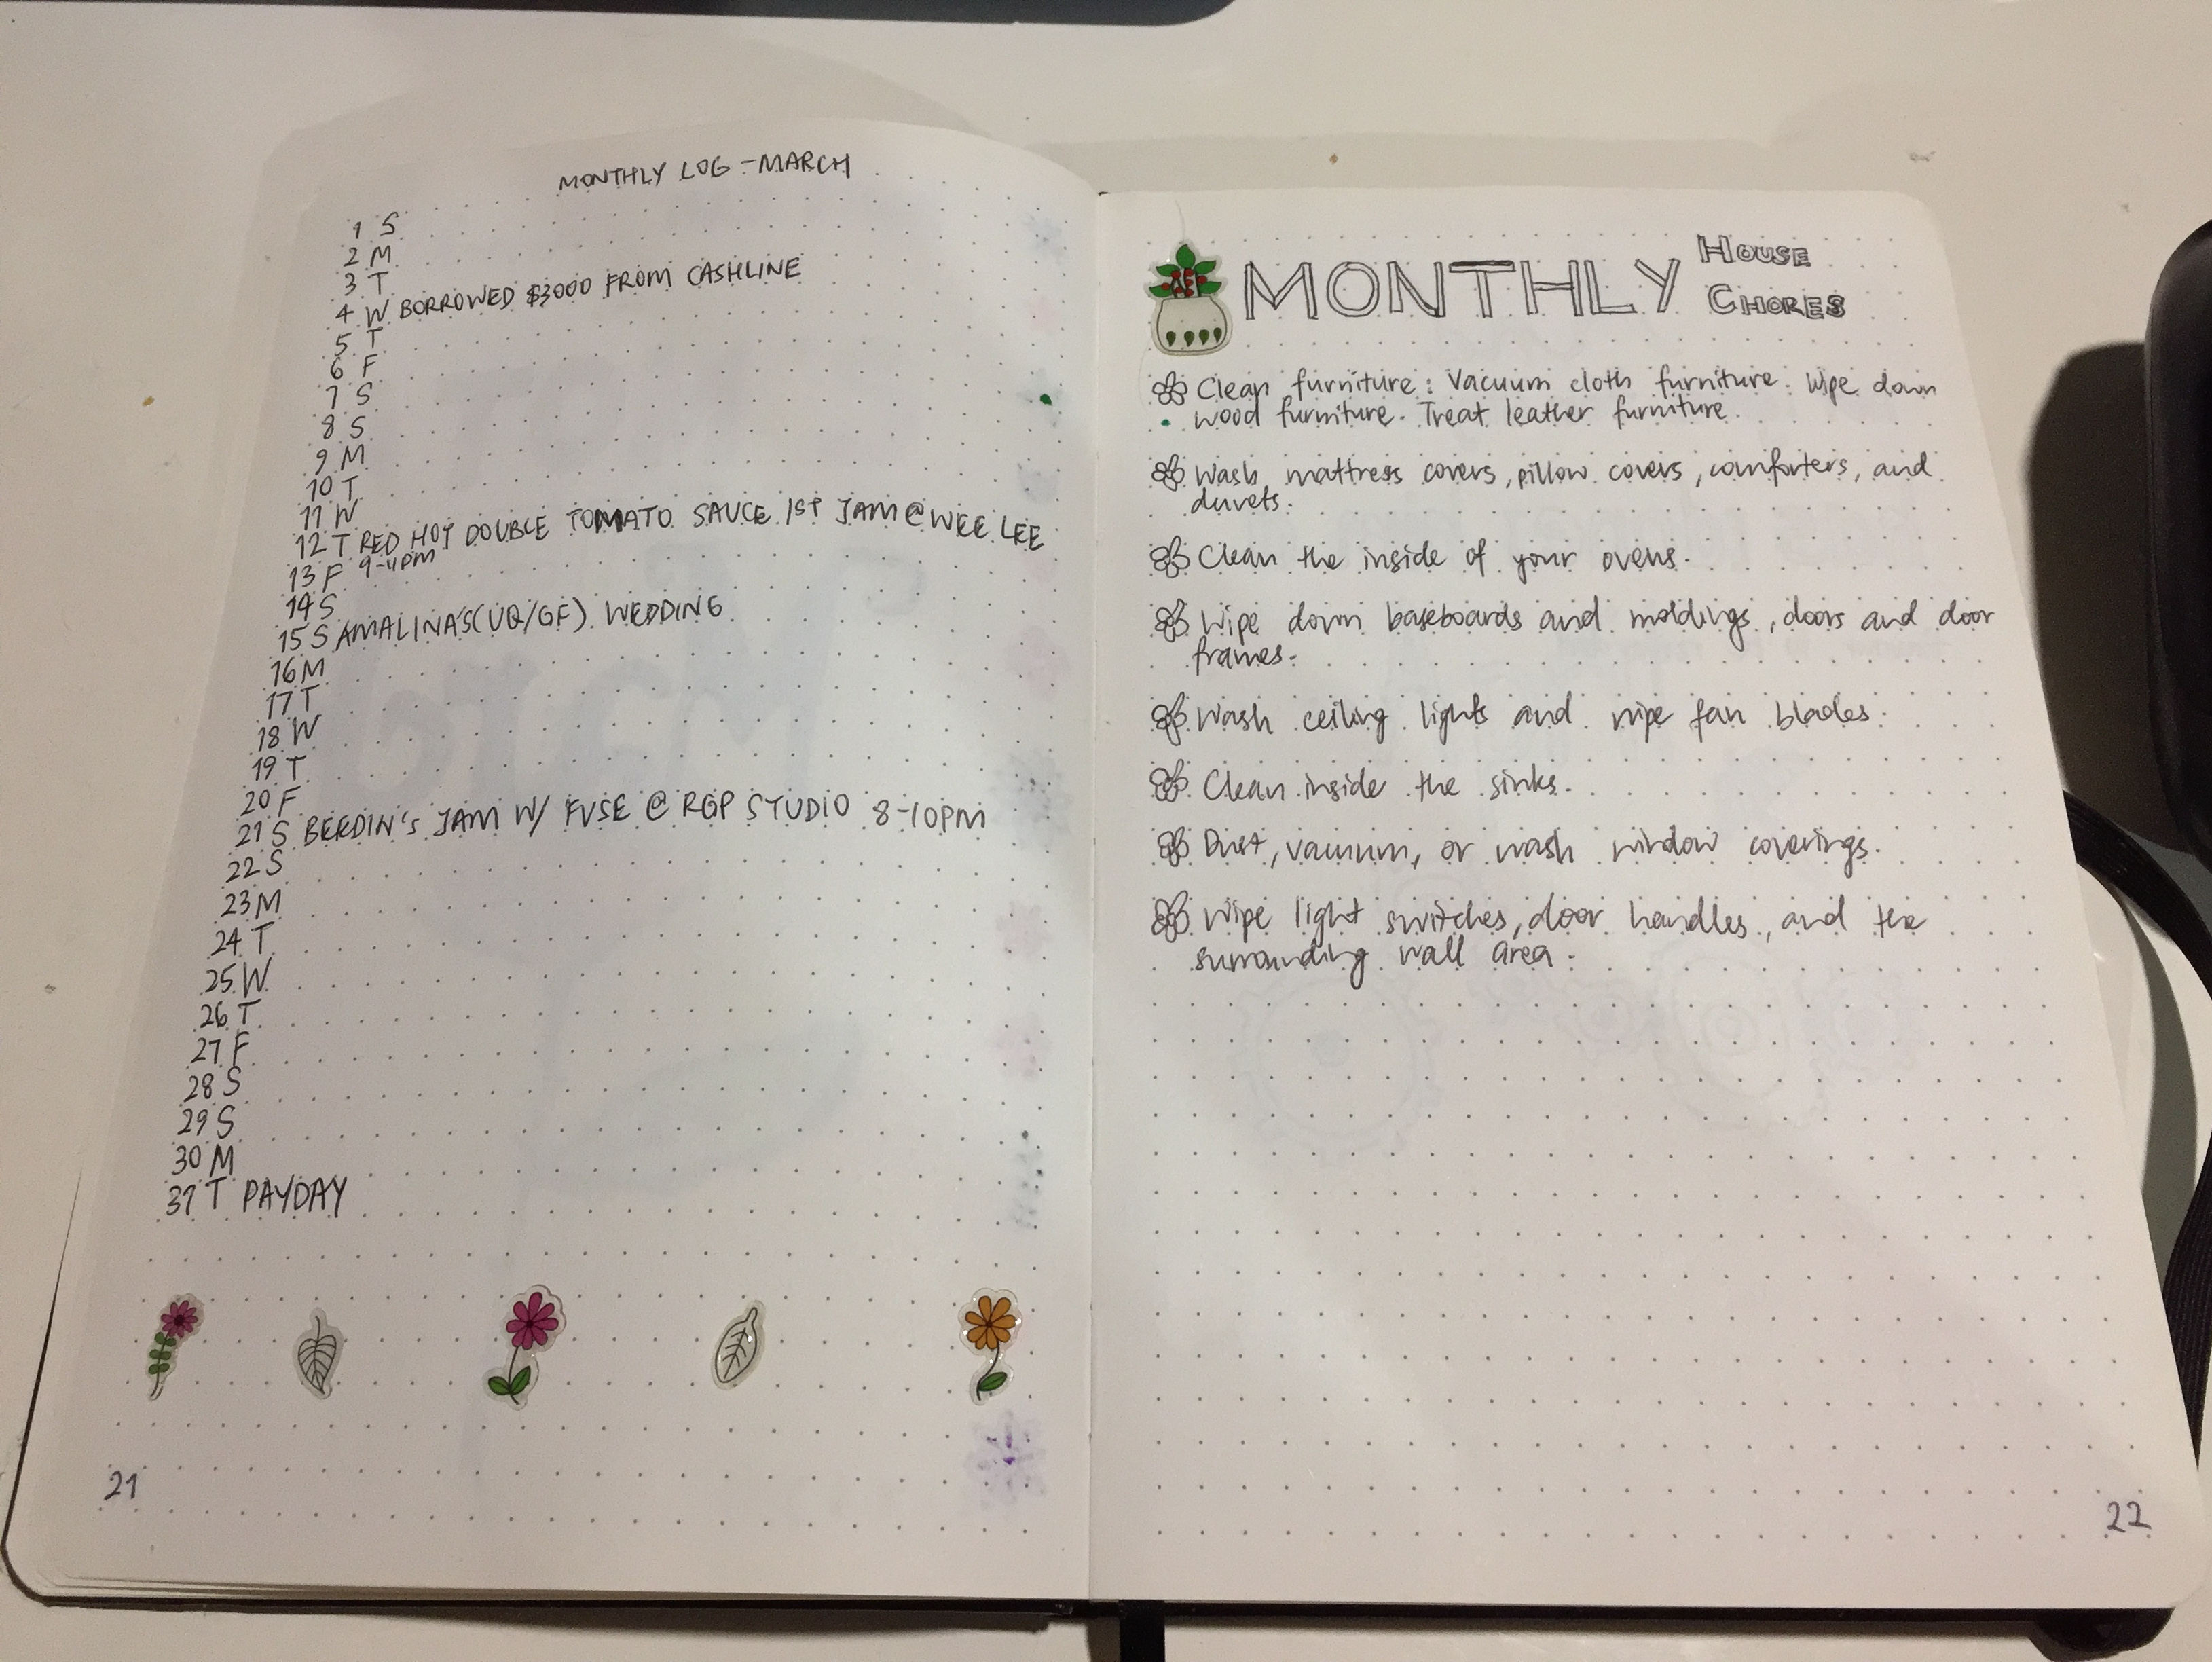 MONTHLY LOG - MARCH
1 S
2 M
3 T
4 W BORROWED $3000 FROM CASHLINE
5 T
6 F
7 S
8 S
9 M
10 T
11 W
12 T RED HOT DOUBLE TOMATO SAUCE 1ST JAM @ WEE LEE
9-11PM
13 F
14 S
15 S AMALINA'S (UQ/GF) WEDDING
16 M
17 T
18 W
19 T
20 F
21 S BEEDIN'S JAM W/ FVSE @ RGP STUDIO 8-10PM
22 S
23 M
24 T
25 W
26 T
27 F
28 S
29 S
30 M
31 T PAYDAY
21
MONTHLY HOUSE
CHORES
Clean furniture: Vacuum cloth furniture. Wipe down
wood furniture. Treat leather furniture.
Wash mattress covers, pillow covers, comforters, and
duvets.
Clean the inside of your ovens.
Wipe down baseboards and moldings, doors and door
frames.
Wash ceiling lights and wipe fan blades.
Clean inside the sinks.
Dust, vacuum, or wash window coverings.
Wipe light switches, door handles, and the
surrounding wall area.
22